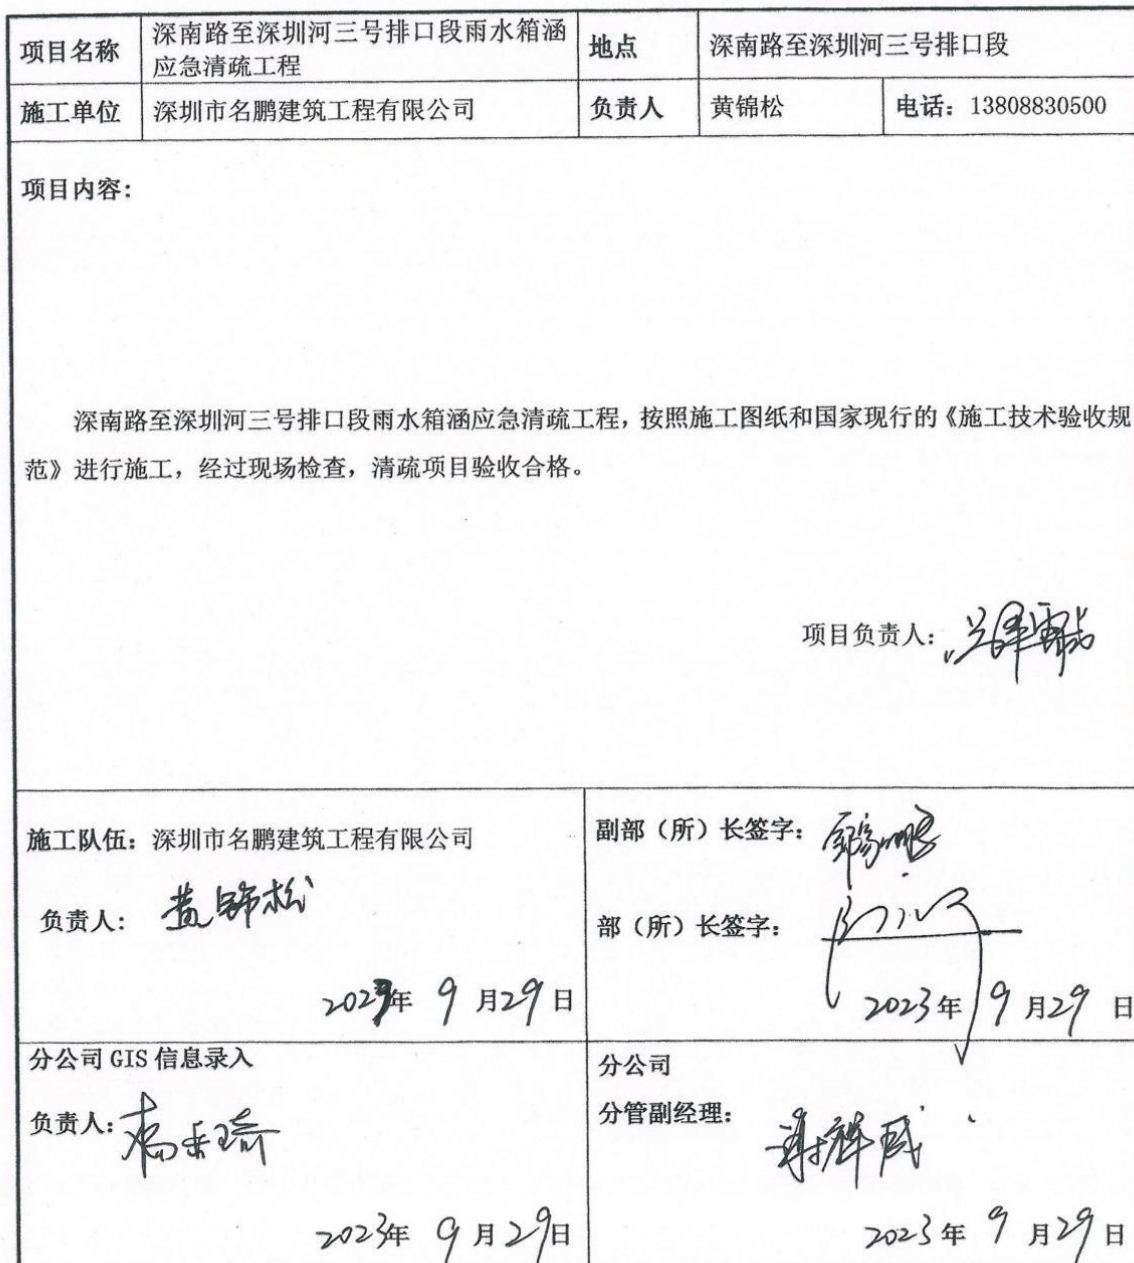 项目名称 深南路至深圳河三号排口段雨水箱涵应急清疏工程 地点 深南路至深圳河三号排口段
施工单位 深圳市名鹏建筑工程有限公司 负责人 黄锦松 电话：13808830500
项目内容：
深南路至深圳河三号排口段雨水箱涵应急清疏工程，按照施工图纸和国家现行的《施工技术验收规
范》进行施工，经过现场检查，清疏项目验收合格。
项目负责人：
施工队伍：深圳市名鹏建筑工程有限公司
负责人：黄锦松
2023年 9 月29日
副部（所）长签字：
部（所）长签字：
2023年 9 月29 日
分公司 GIS 信息录入
负责人：
2023年 9 月29日
分公司
分管副经理：
2023 年 9 月29日